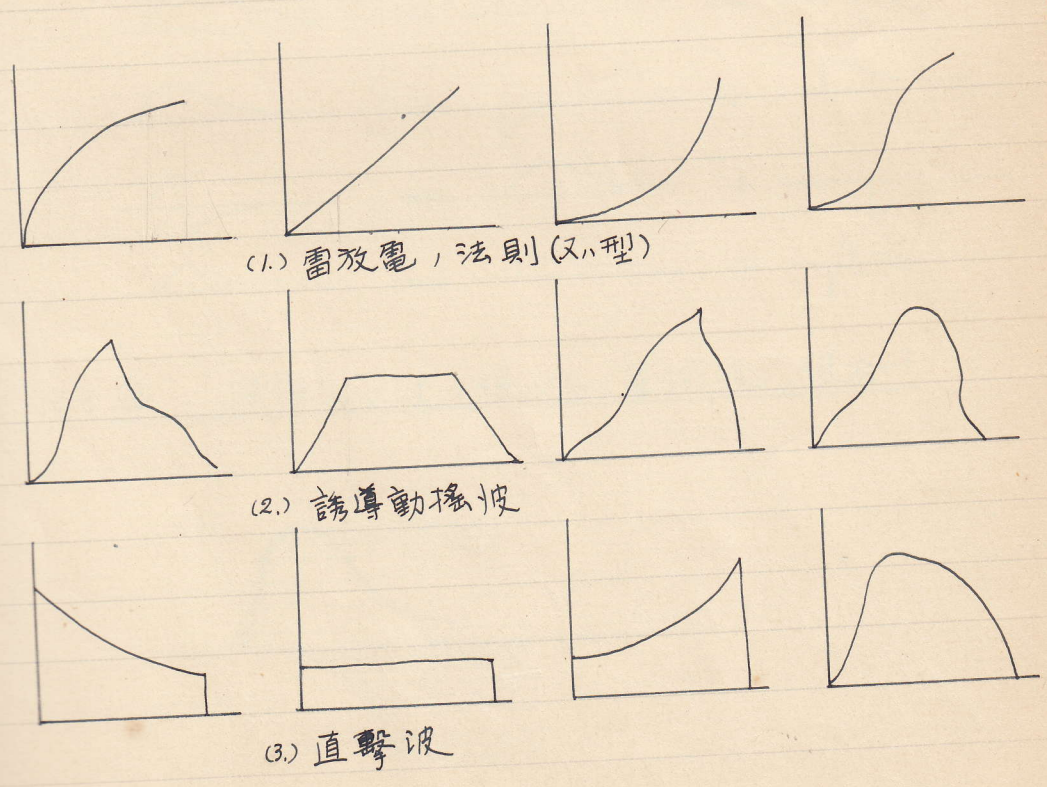 (1.) 雷放電ノ法則(又ハ型)
(2.) 誘導動搖波
(3.) 直擊波